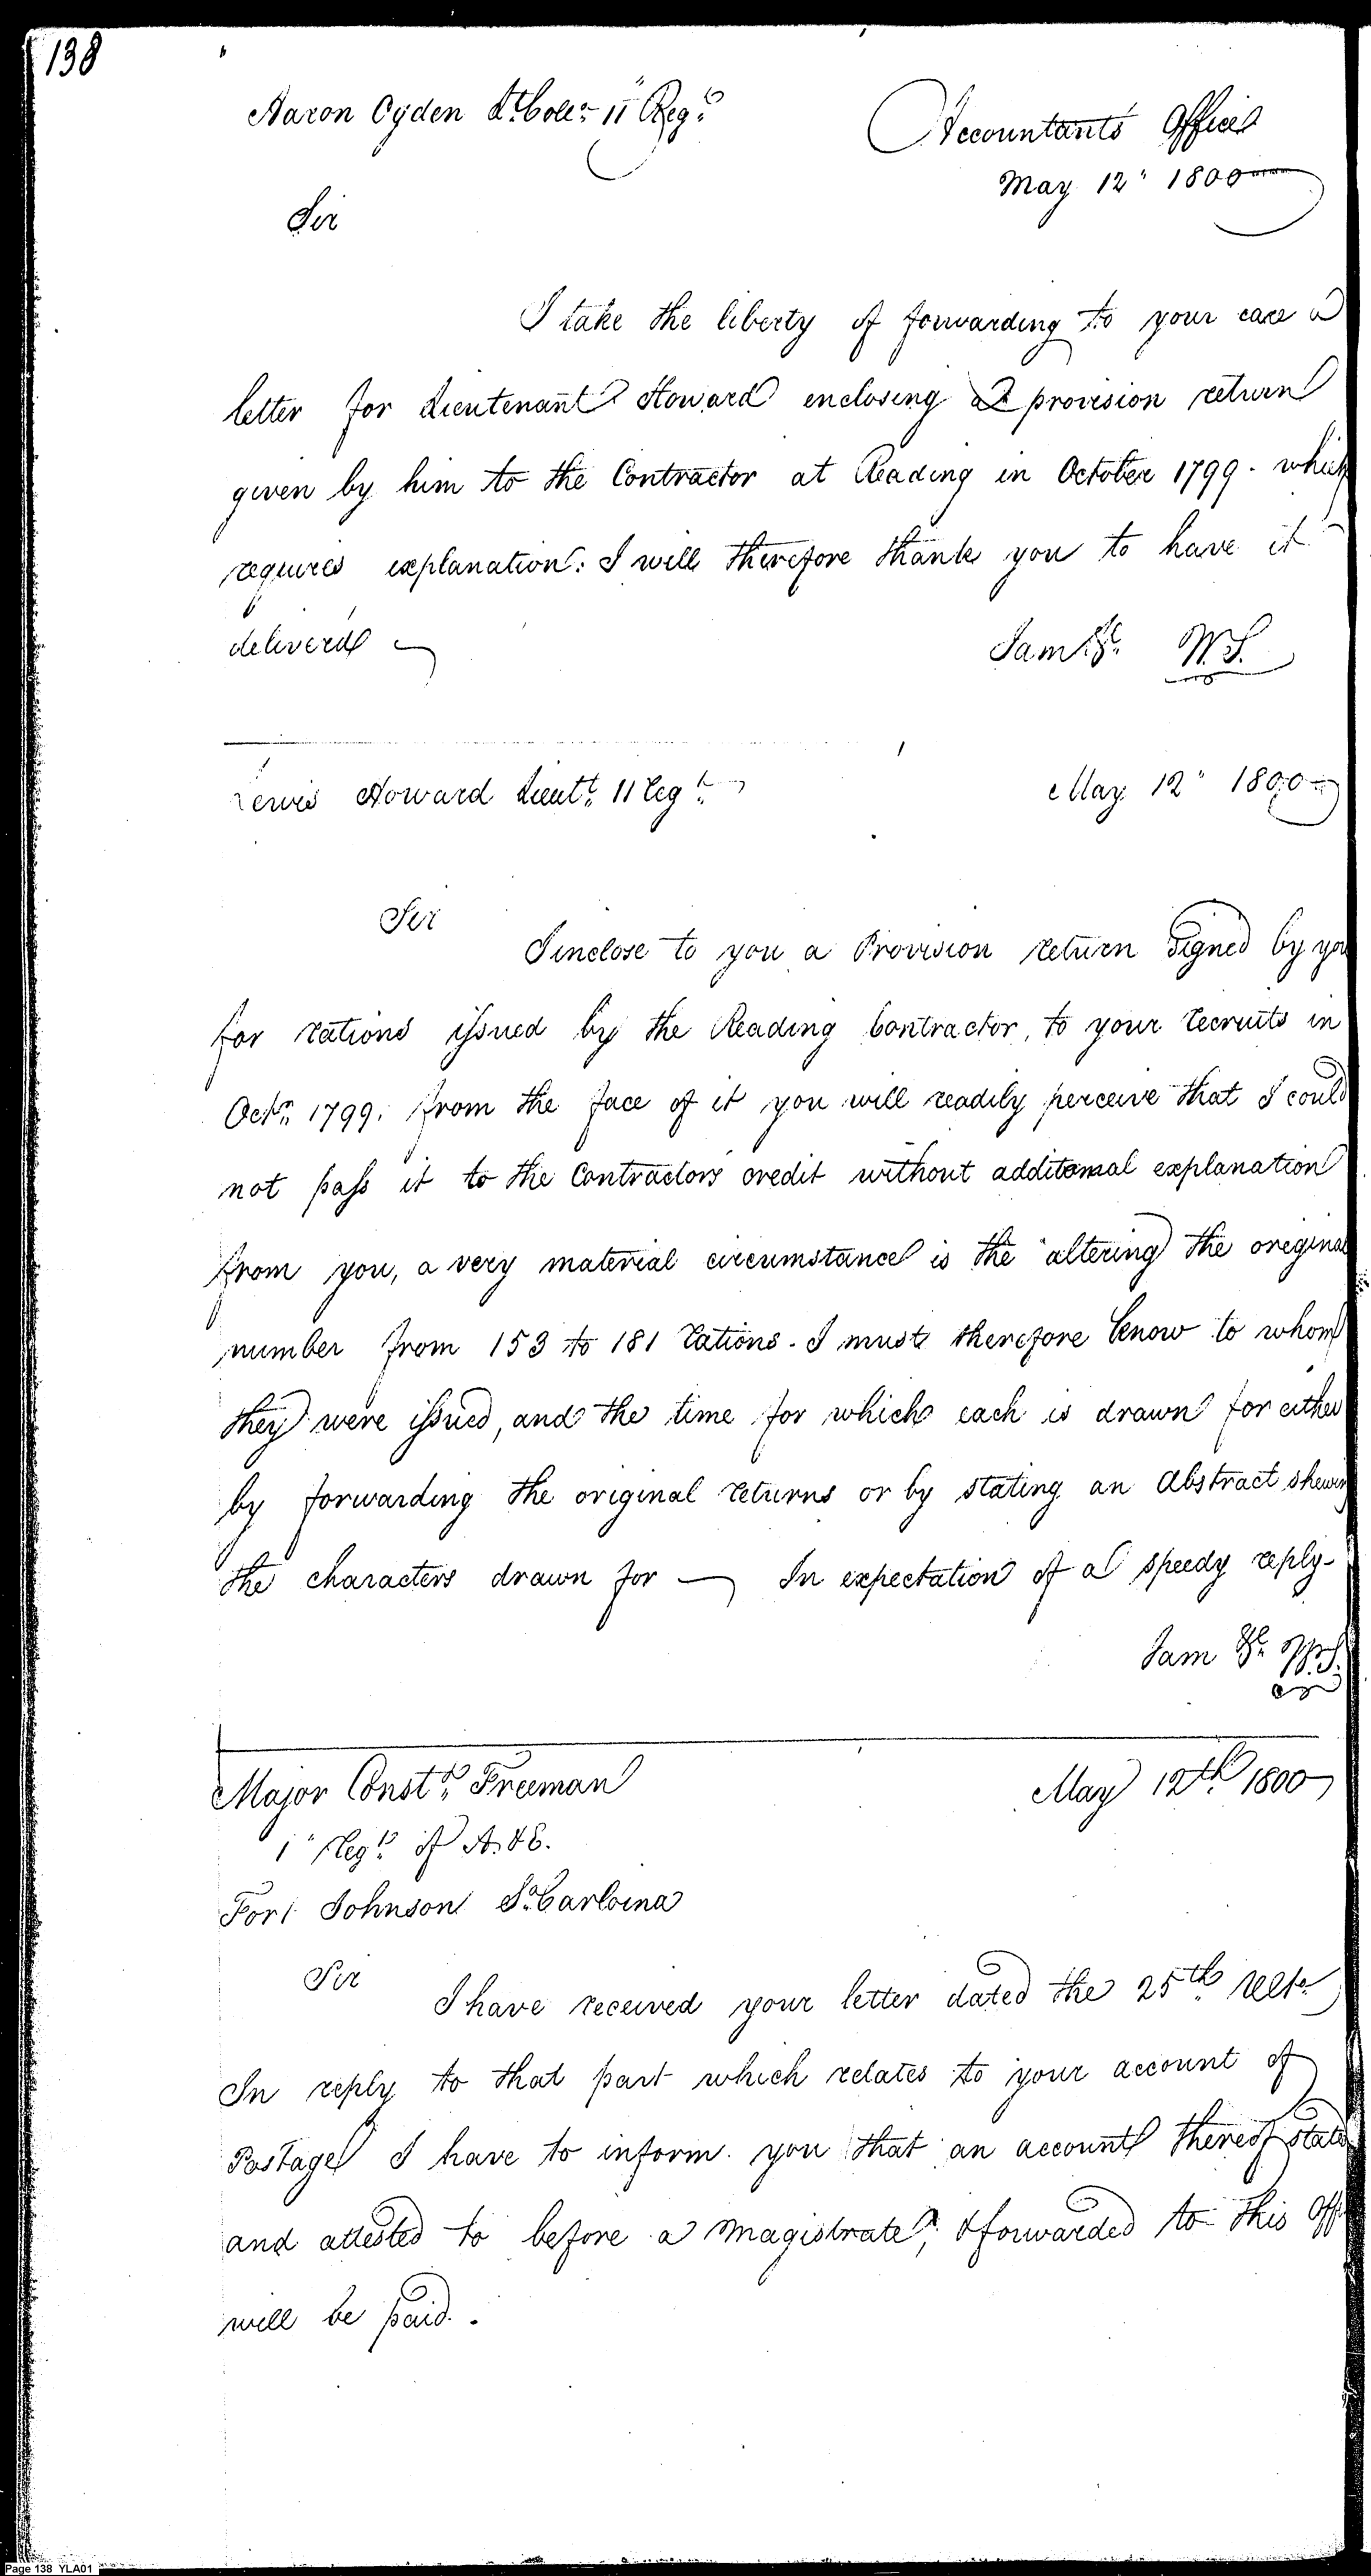 138
Aaron Ogden Lt. Colo. 11" Regt.
Accountants Office
May 12" 1800
Sir
I take the liberty of forwarding to your care a
letter for Lieutenant Howard enclosing a provision return
given by him to the Contractor at Reading in October 1799. which
requires explanation. I will therefore thank you to have it
delivered
I am &c. W.S.
Lewis Howard Lieutt. 11 Regt.
May 12" 1800
Sir
I inclose to you a Provision return signed by you
for rations issued by the Reading Contractor, to your recruits in
Octr. 1799. from the face of it you will readily perceive that I could
not pass it to the Contractors credit without additonal explanation
from you, a very material circumstance is the altering the original
number from 153 to 181 rations. I must therefore know to whom
they were issued, and the time for which each is drawn for either
by forwarding the original returns or by stating an Abstract shewing
the characters drawn for — In expectation of a speedy reply-
I am &c. W.S.
Major Constt. Freeman
May 12th 1800
1" Regt. of A. & E.
Fort Johnson So. Carloina
Sir
I have received your letter dated the 25th ulto.
In reply to that part which relates to your account of
Postage I have to inform you that an account thereof stated
and attested to before a Magistrate, & forwarded to this Off
will be paid.
Page 138 YLA01